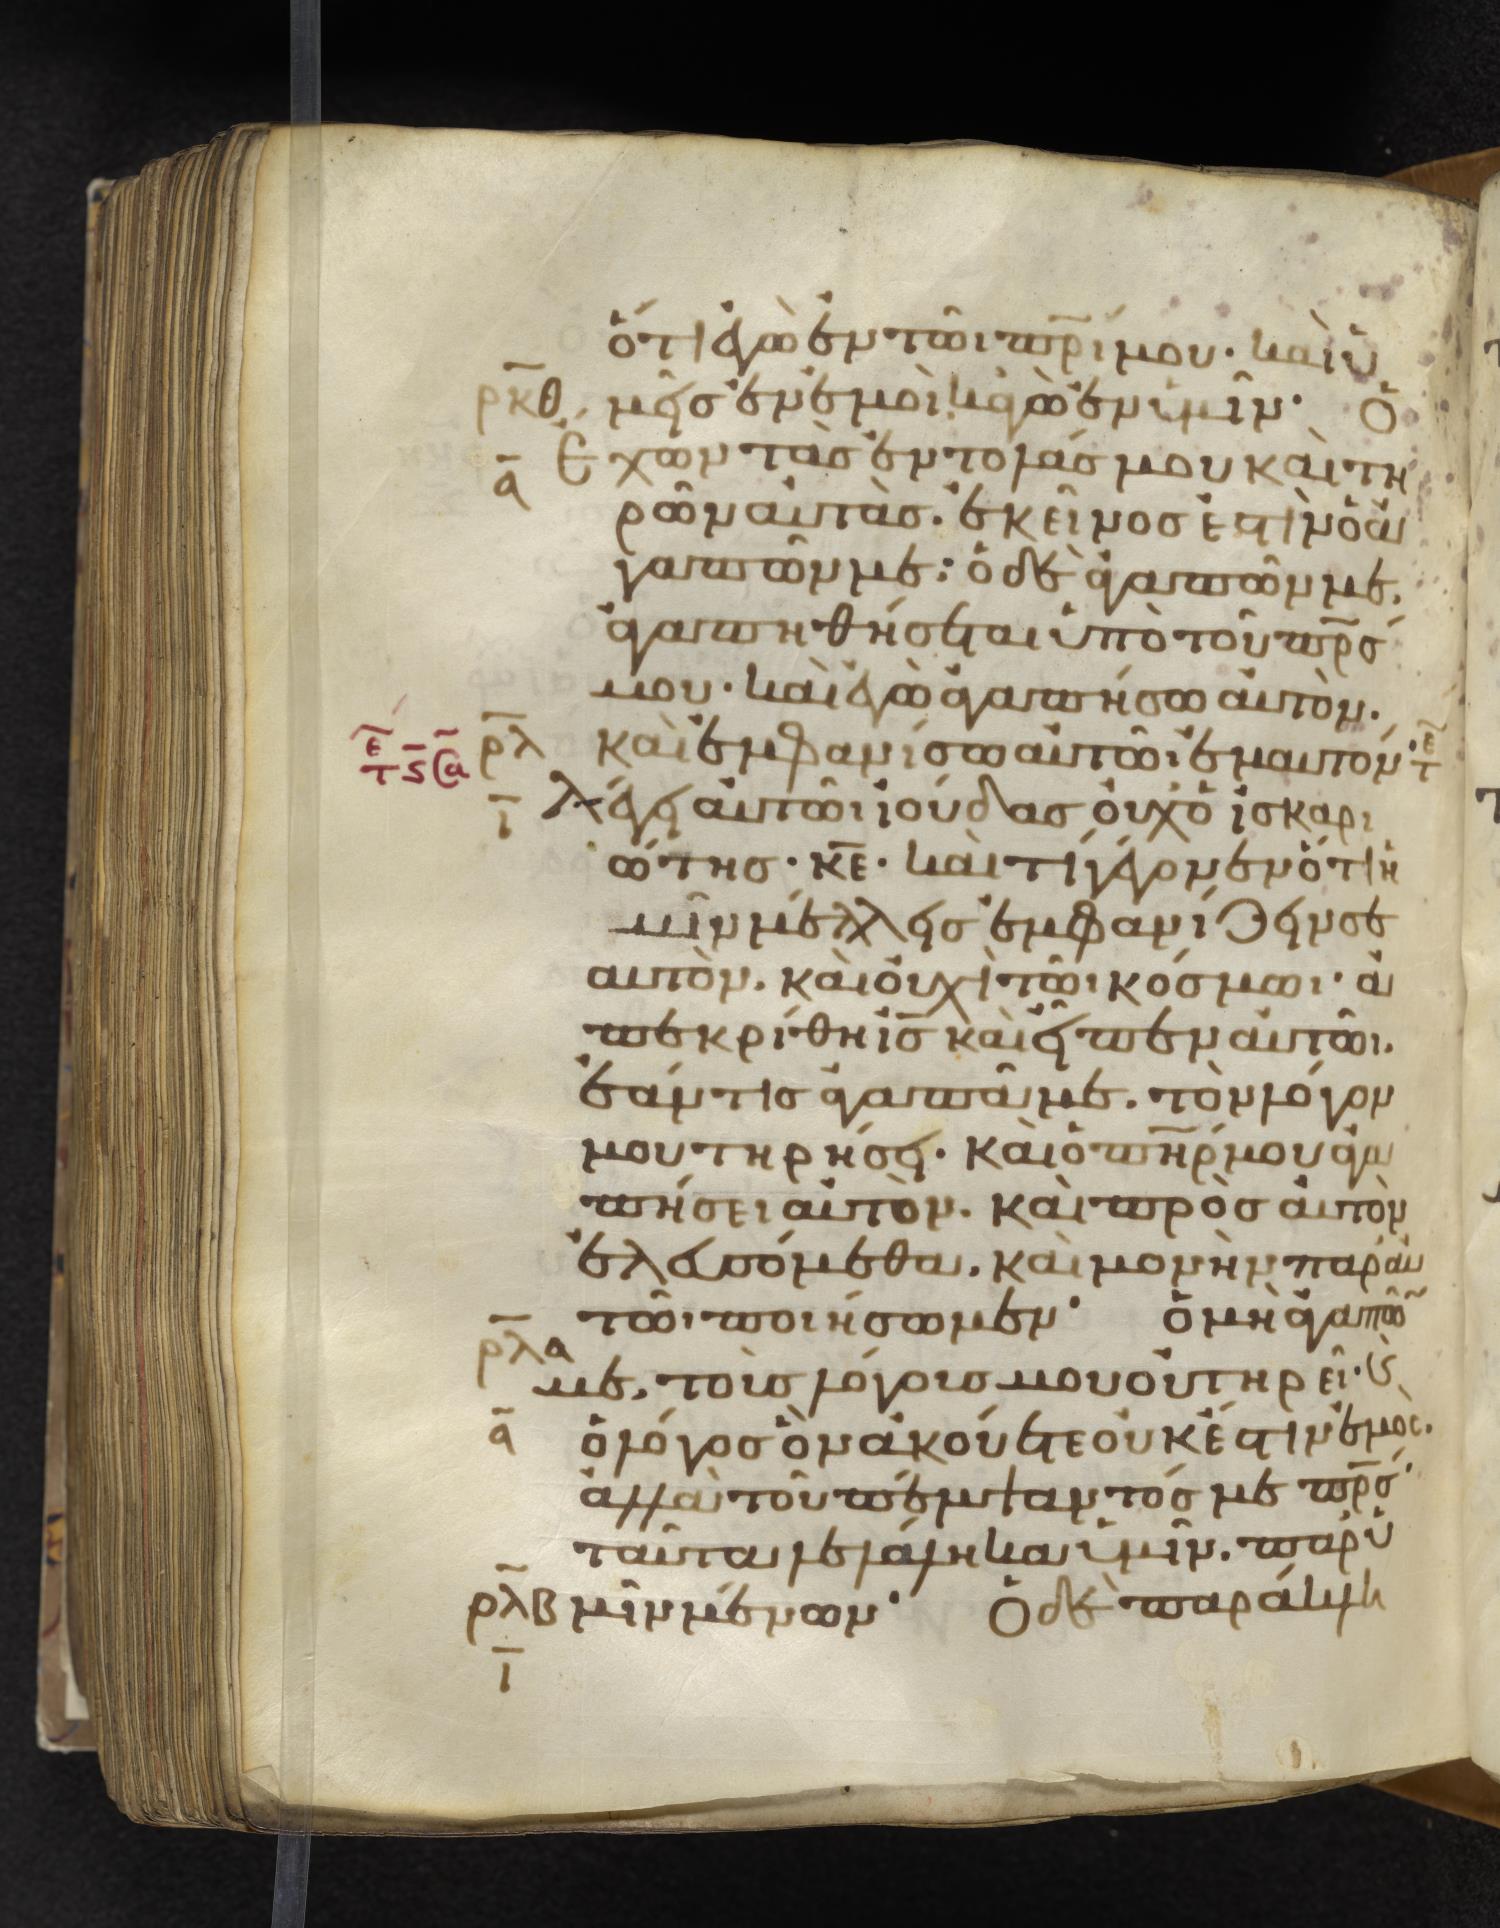 ὅτι ἐγὼ ἐν τῶι πρ̅ί μου· καὶ ὑ
ρ̅κ̅θ μεῖς ἐν ἐμοὶ κἀγὼ ἐν ὑμῖν· Ὁ
α̅ Ἔχων τὰς ἐντολάς μου καὶ τη
ρῶν αὐτὰς. ἐκεῖνος ἐστὶν ὁ ἀ
γαπῶν με: ὁ δὲ ἀγαπῶν με.
ἀγαπηθήσεται ὑπὸ τοῦ πρ̅ς
μου· καὶ ἐγὼ ἀγαπήσω αὐτὸν.
ρ̅λ καὶ ἐμφανίσω αὐτῶι ἐμαυτόν·
ι̅ λέγει αὐτῶι ἰούδας οὐχ ὁ ἰσκαρι
ώτης· κ̅ε̅· καὶ τί γέγονεν ὅτι ἡ
μῖν μέλλεις ἐμφανίζειν σε
αυτὸν. καὶ οὐχὶ τῶι κόσμωι· ἀ
πεκρίθη ι̅ς̅ καὶ εἶπεν αὐτῶι.
ἐάν τις ἀγαπᾶ με. τὸν λόγον
μου τηρήσει· καὶ ὁ π̅η̅ρ μου ἀγα
πήσει αὐτὸν. καὶ πρὸς αὐτὸν
ἐλευσόμεθα. καὶ μονὴν παρ' αὐ
τῶι ποιήσωμεν· ὁ μὴ ἀγαπῶ̅
ρ̅λ̅α με. τοὺς λόγους μου οὐ τηρεῖ· ϗ
α̅ ὁ λόγος ὃν ἀκούετε οὐκ ἔστιν ἐμὸς.
ἀλλὰ τοῦ πέμψαντός με πρ̅ς·
ταῦτα λελάληκα ὑμῖν. παρ' ὑ
ρ̅λ̅β μῖν μένων· Ὁ δὲ παράκλη
ι̅